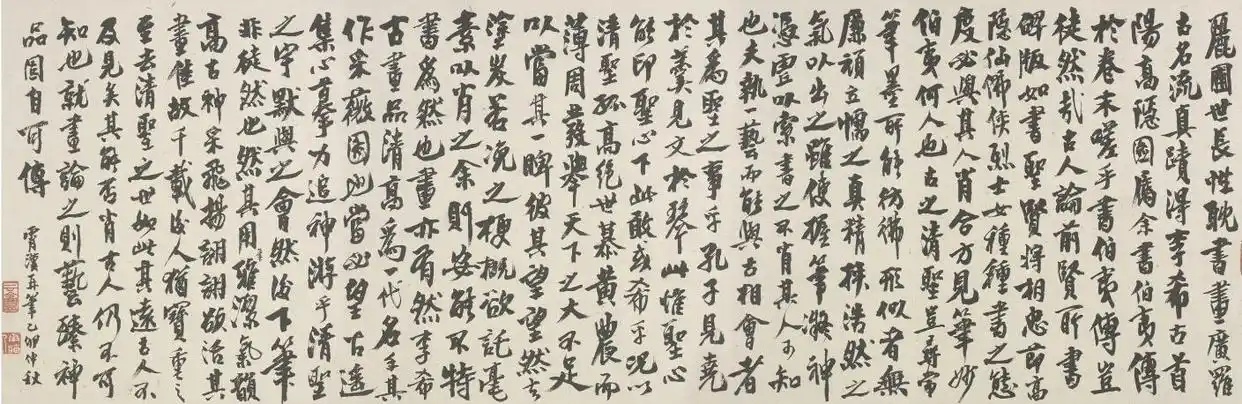 麗圃世長性耽書畫廣羅
古名流真蹟得李希古首
陽高隱圖屬余書伯夷傳
於卷末嗟乎書伯夷傳豈
徒然哉古人論前賢所書
碑版如書聖賢將相忠節高
隱仙佛俠烈士女種種書之態
度必與其人肖合方見筆妙
伯夷何人也古之清聖豈尋常
筆墨所能彷彿形似者無
廉頑立懦之真精摶浩然之
氣以出之雖使握筆凝神
憑靈吸索書之不肖其人可知
也夫執一藝而能與古相會者
其為聖之事乎孔子見堯
於羹見文於琴此惟聖心
能印聖心下此敢或希乎況以
清聖孤高絕世慕黃農而
薄周發舉天下之大不足
以當其一睥彼其望望然去
塗炭若浼之梗概欲託毫
素以肖之余則安能不特
書為然也畫亦有然李希
古畫品清高為一代名手其
作采薇圖也當必望古遙
集心摹力追神游乎清聖
之宇默與之會然後下筆
非徒然也然其用筆雅潔氣韻
高古神采飛揚詡詡欲活其
畫佳故千載後人猶寶重之
至去清聖之世如此其遠吾人不
及見矣其能否肖古人仍不可
知也就畫論之則藝臻神
品固自可傳
再筆乙卯仲秋